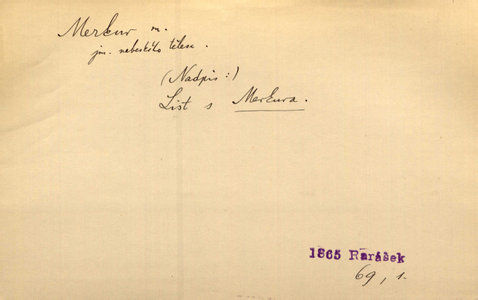 Merkur m.
jm. nebeského tělesa.
(Nadpis:)
List s Merkura.
1865 Rarášek
69, 1.